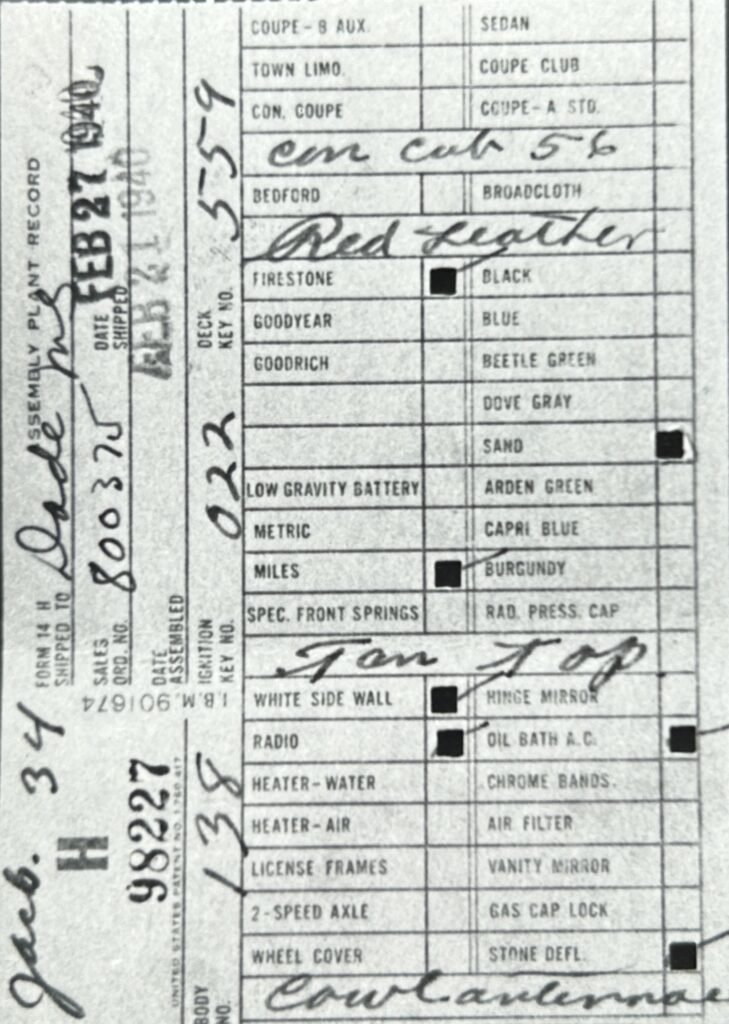 COUPE-B AUX. SEDAN
TOWN LIMO. COUPE CLUB
CON. COUPE COUPE-A STD.
con cub 56
BEDFORD BROADCLOTH
Red Leather
FIRESTONE BLACK
GOODYEAR BLUE
GOODRICH BEETLE GREEN
DOVE GRAY
SAND
LOW GRAVITY BATTERY ARDEN GREEN
METRIC CAPRI BLUE
MILES BURGUNDY
SPEC. FRONT SPRINGS RAD. PRESS. CAP
Tan top
WHITE SIDE WALL HINGE MIRROR
RADIO OIL BATH A.C.
HEATER-WATER CHROME BANDS.
HEATER-AIR AIR FILTER
LICENSE FRAMES VANITY MIRROR
2-SPEED AXLE GAS CAP LOCK
WHEEL COVER STONE DEFL.
Cowl antennae
FORM 14 H ASSEMBLY PLANT RECORD
Jacb. 34
SHIPPED TO
H
SALES ORD. NO. 800375
DATE SHIPPED FEB 27 1940
FEB 21 1940
98227
DATE ASSEMBLED
I.B.M. 901674
UNITED STATES PATENT NO. 1,780,417
BODY NO. 138
IGNITION KEY NO. 022
DECK KEY NO. 559